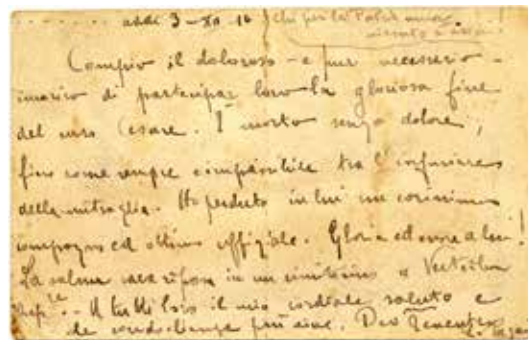 addì 3-XII-16 Chi per la Patria muor
vissuto è assai!
Compio il doloroso - e pur necessario -
incarico di partecipar loro la gloriosa fine
del caro Cesare. È morto senza dolore,
fiero come sempre tra l'infuriare
della mitraglia. Ho perduto in lui un carissimo
compagno ed ottimo uffiziale. Gloria ed onore a lui!
La salma sarà in un cimitero a
A tutti loro il mio cordiale saluto e
le condoglianze più vive. Dev